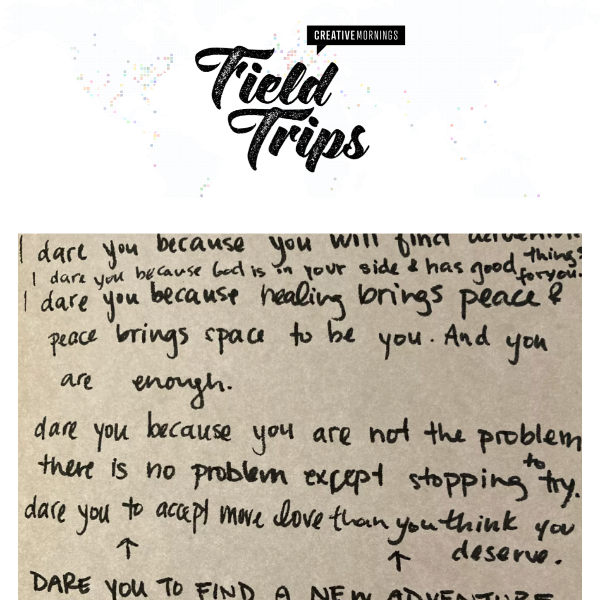 CREATIVEMORNINGS
Field
Trips
I dare you because you will find adventure
I dare you because God is in your side & has good things for you.
I dare you because healing brings peace &
peace brings space to be you. And you
are enough.
dare you because you are not the problem
there is no problem except stopping to try.
dare you to accept more love than you think you
deserve.
DARE YOU TO FIND A NEW ADVENTURE